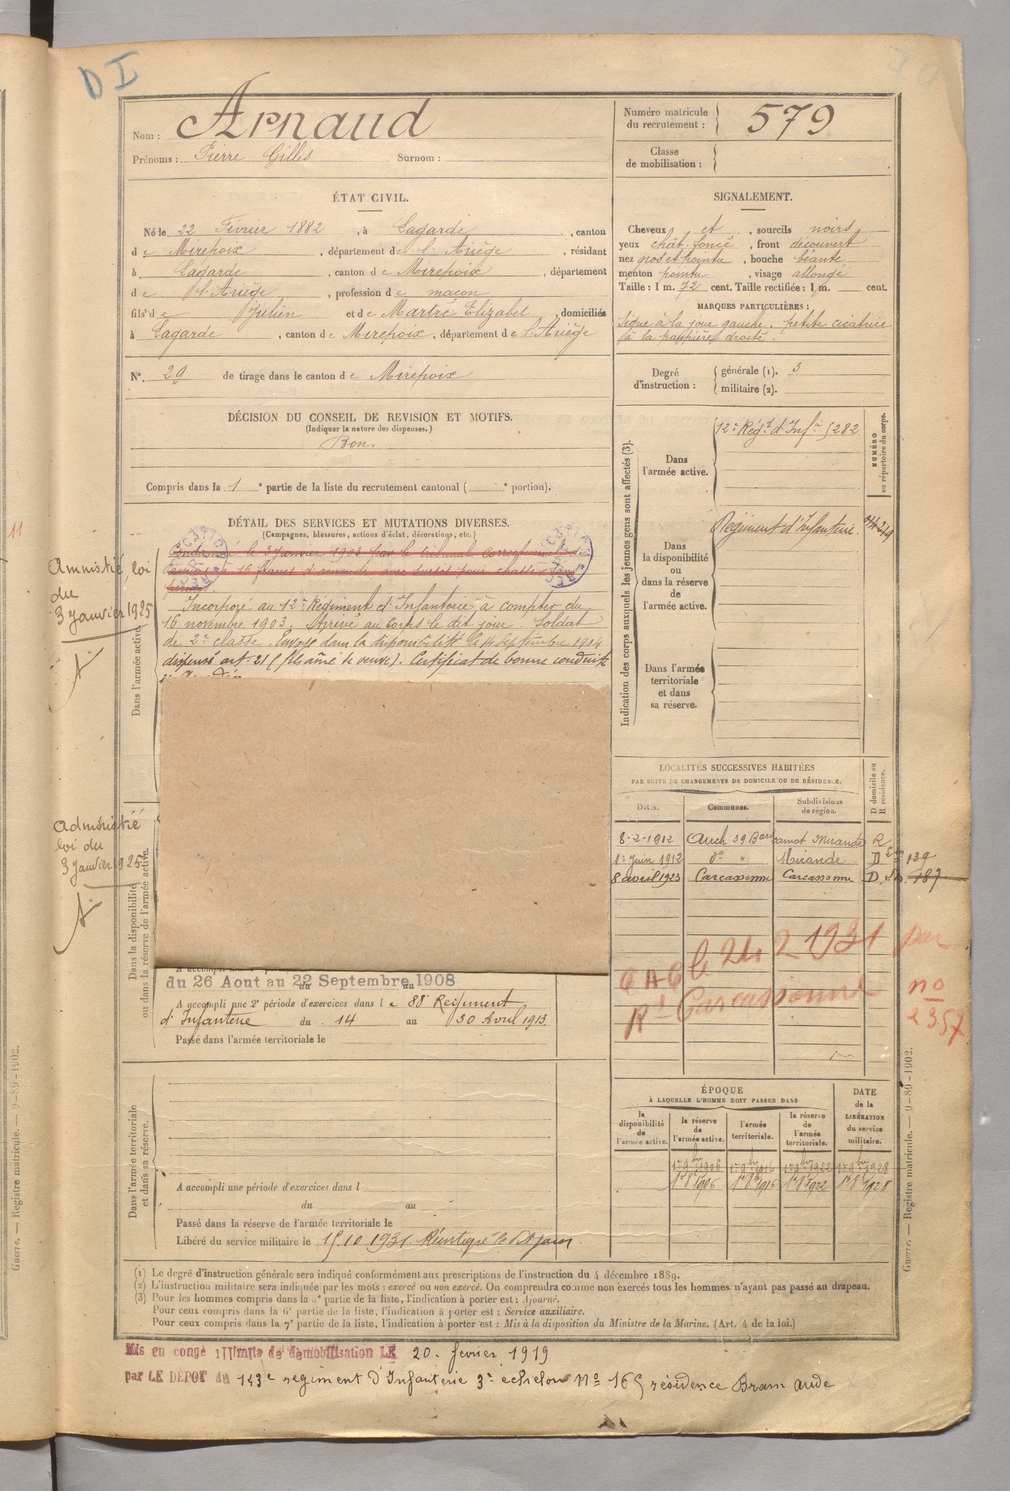 DI
Nom : Arnaud
Prénoms : Pierre Gilles Surnom :
Numéro matricule du recrutement : 579
Classe de mobilisation :
ÉTAT CIVIL.
Né le 22 Février 1882, à Lagarde, canton
de Mirepoix, département de l'Ariège, résidant
à Lagarde, canton de Mirepoix, département
de l'Ariège, profession de maçon
fils de Julien et de Martre Elizabet, domiciliés
à Lagarde, canton de Mirepoix, département de l'Ariège
N° 29 de tirage dans le canton de Mirepoix
SIGNALEMENT.
Cheveux et, sourcils noirs
yeux chât. foncé, front découvert
nez gros et pointu, bouche béante
menton pointu, visage allongé
Taille : 1 m. 72 cent. Taille rectifiée : 1 m. cent.
MARQUES PARTICULIÈRES :
signe à la joue gauche. petite cicatrice
à la paupière droite.
Degré d'instruction : générale (1). 3
militaire (2).
DÉCISION DU CONSEIL DE REVISION ET MOTIFS.
(Indiquer la nature des dispenses.)
Bon.
Compris dans la 1e partie de la liste du recrutement cantonal ( e portion).
DÉTAIL DES SERVICES ET MUTATIONS DIVERSES.
(Campagnes, blessures, actions d'éclat, décorations, etc.)
le 3 janvier 1903 par le tribunal correctionnel
16 francs d'amende avec sursis pour chasse
Incorporé au 12e Régiment d'Infanterie à compter du
16 novembre 1903. Arrivé au corps le dit jour. Soldat
de 2e classe. Envoyé dans la disponibilité le 14 septembre 1904
dispensé art. 21 (fils aîné de veuve). Certificat de bonne conduite
Amnistié, loi
du
3 janvier 1925
Dans l'armée active.
Amnistié
loi du
3 janvier 1925
Dans la disponibilité
ou dans la réserve de l'armée active.
du 26 Aout au 22 Septembre 1908
A accompli une 2e période d'exercices dans le 88e Régiment
d'Infanterie du 14 au 30 Avril 1913
Passé dans l'armée territoriale le
Dans l'armée territoriale
et dans sa réserve.
A accompli une période d'exercices dans l
du au
Passé dans la réserve de l'armée territoriale le
Libéré du service militaire le 15 10 1931
Indication des corps auxquels les jeunes gens sont affectés (3).
NUMÉRO
au répertoire du corps.
Dans
l'armée active.
12e Régt d'Infie 5282
Dans
la disponibilité
ou
dans la réserve
de
l'armée active.
Régiment d'Infanterie
Dans l'armée
territoriale
et dans
sa réserve.
LOCALITÉS SUCCESSIVES HABITÉES
PAR SUITE DE CHANGEMENTS DE DOMICILE OU DE RÉSIDENCE.
D domicile ou
R résidence.
Dates. Communes. Subdivisions de région.
8-2-1912 Auch 39 Bard Carnot Mirande R
1er Juin 1912 do " Mirande D 139
8 avril 1923 Carcassonne Carcassonne D. 187
le 24 2 1931 par
Rt Carcassonne
no
2357
ÉPOQUE
À LAQUELLE L'HOMME DOIT PASSER DANS
DATE
de la
LIBÉRATION
du service
militaire.
la disponibilité de l'armée active.
la réserve de l'armée active.
l'armée territoriale.
la réserve de l'armée territoriale.
1er 9bre 1906 1er 9bre 1916 1er 9bre 1922 1er 9bre 1928
1er 8bre 1906 1er 8bre 1916 1er 8bre 1922 1er 8bre 1928
(1) Le degré d'instruction générale sera indiqué conformément aux prescriptions de l'instruction du 4 décembre 1889.
(2) L'instruction militaire sera indiquée par les mots : exercé ou non exercé. On comprendra comme non exercés tous les hommes n'ayant pas passé au drapeau.
(3) Pour les hommes compris dans la 5e partie de la liste, l'indication à porter est : Ajourné.
Pour ceux compris dans la 6e partie de la liste, l'indication à porter est : Service auxiliaire.
Pour ceux compris dans la 7e partie de la liste, l'indication à porter est : Mis à la disposition du Ministre de la Marine. (Art. 4 de la loi.)
Mis en congé illimité de démobilisation LE 20. fevrier 1919
par LE DÉPOT du 143e régiment d'Infanterie 3e echelon No 165 résidence Bram Aude
Guerre. — Registre matricule. — 9-89-1902.
Guerre. — Registre matricule. — 9-89-1902.
11